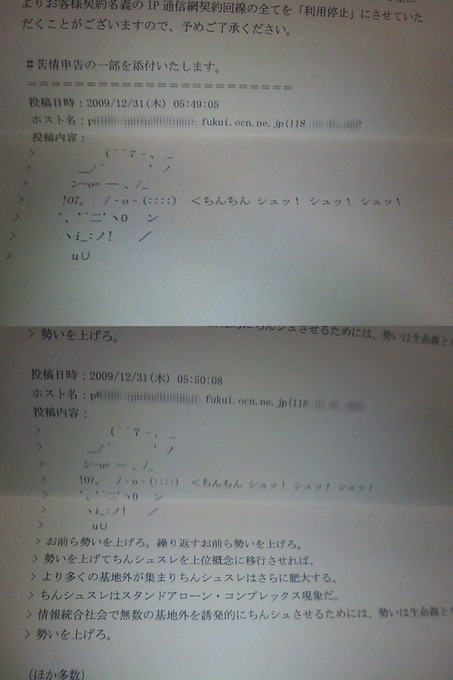 よりお客様契約名義の IP 通信網契約回線の全てを「利用停止」にさせていた
だくことがございますので、予めご了承ください。
＃苦情申告の一部を添付いたします。
======================
投稿日時：2009/12/31(木) 05:49:05
ホスト名：p fukui.ocn.ne.jp(118
投稿内容：
>
>
>
> !07。 /‐o‐(::::) ＜ちんちん シュッ！ シュッ！ シュッ！
>
>
> u∪
> 勢いを上げろ。 ちんシュさせるためには、勢いは生命線と
投稿日時：2009/12/31(木) 05:50:08
ホスト名：p fukui.ocn.ne.jp(118
投稿内容：
>
>
>
> !07。 /‐o‐(::::) ＜ちんちん シュッ！ シュッ！ シュッ！
>
>
> u∪
> お前ら勢いを上げろ。繰り返すお前ら勢いを上げろ。
> 勢いを上げてちんシュスレを上位概念に移行させれば、
> より多くの基地外が集まりちんシュスレはさらに肥大する。
> ちんシュスレはスタンドアローン・コンプレックス現象だ。
> 情報統合社会で無数の基地外を誘発的にちんシュさせるためには、勢いは生命線と
> 勢いを上げろ。
(ほか多数)